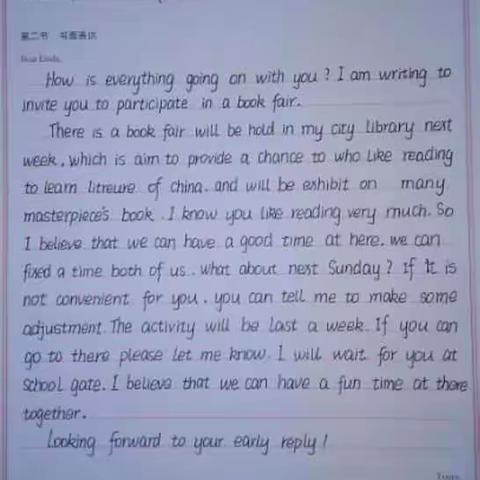 第二节 书面表达
Dear Linda,
How is everything going on with you? I am writing to
invite you to participate in a book fair.
There is a book fair will be hold in my city library next
week, which is aim to provide a chance to who like reading
to learn litreure of china. and will be exhibit on many
masterpiece's book. I know you like reading very much. So
I believe that we can have a good time at here. we can
fixed a time both of us. what about next Sunday? If it is
not convenient for you, you can tell me to make some
adjustment. The activity will be last a week. If you can
go to there please let me know. I will wait for you at
school gate. I believe that we can have a fun time at there
together.
Looking forward to your early reply!
Yours,